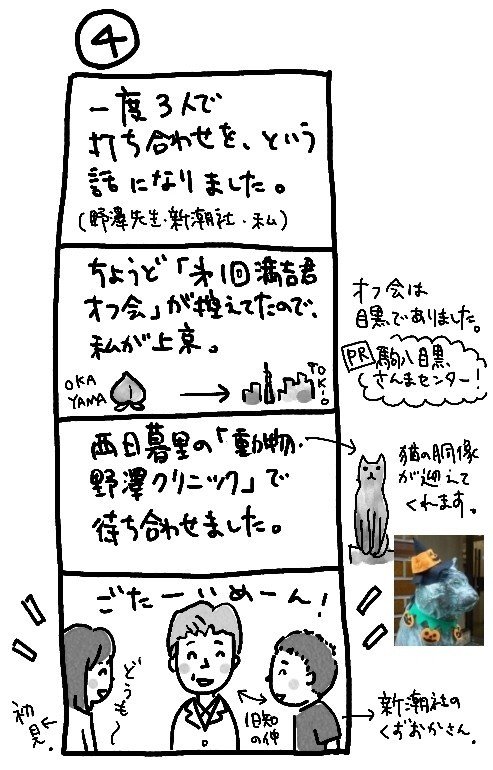 ④
一度3人で
打ち合わせを、という
話になりました。
(野澤先生・新潮社・私)
ちょうど「第1回満吉君
オフ会」が控えてたので、
私が上京。
OKA
YAMA
TOKIO
オフ会は
目黒でありました。
PR 駒八目黒
さんまセンター!
西日暮里の「動物・
野澤クリニック」で
待ち合わせました。
猫の胴像
が迎えて
くれます。
ごたーいめーん!
どうも〜
初見。
旧知
の仲
新潮社の
くずおかさん。